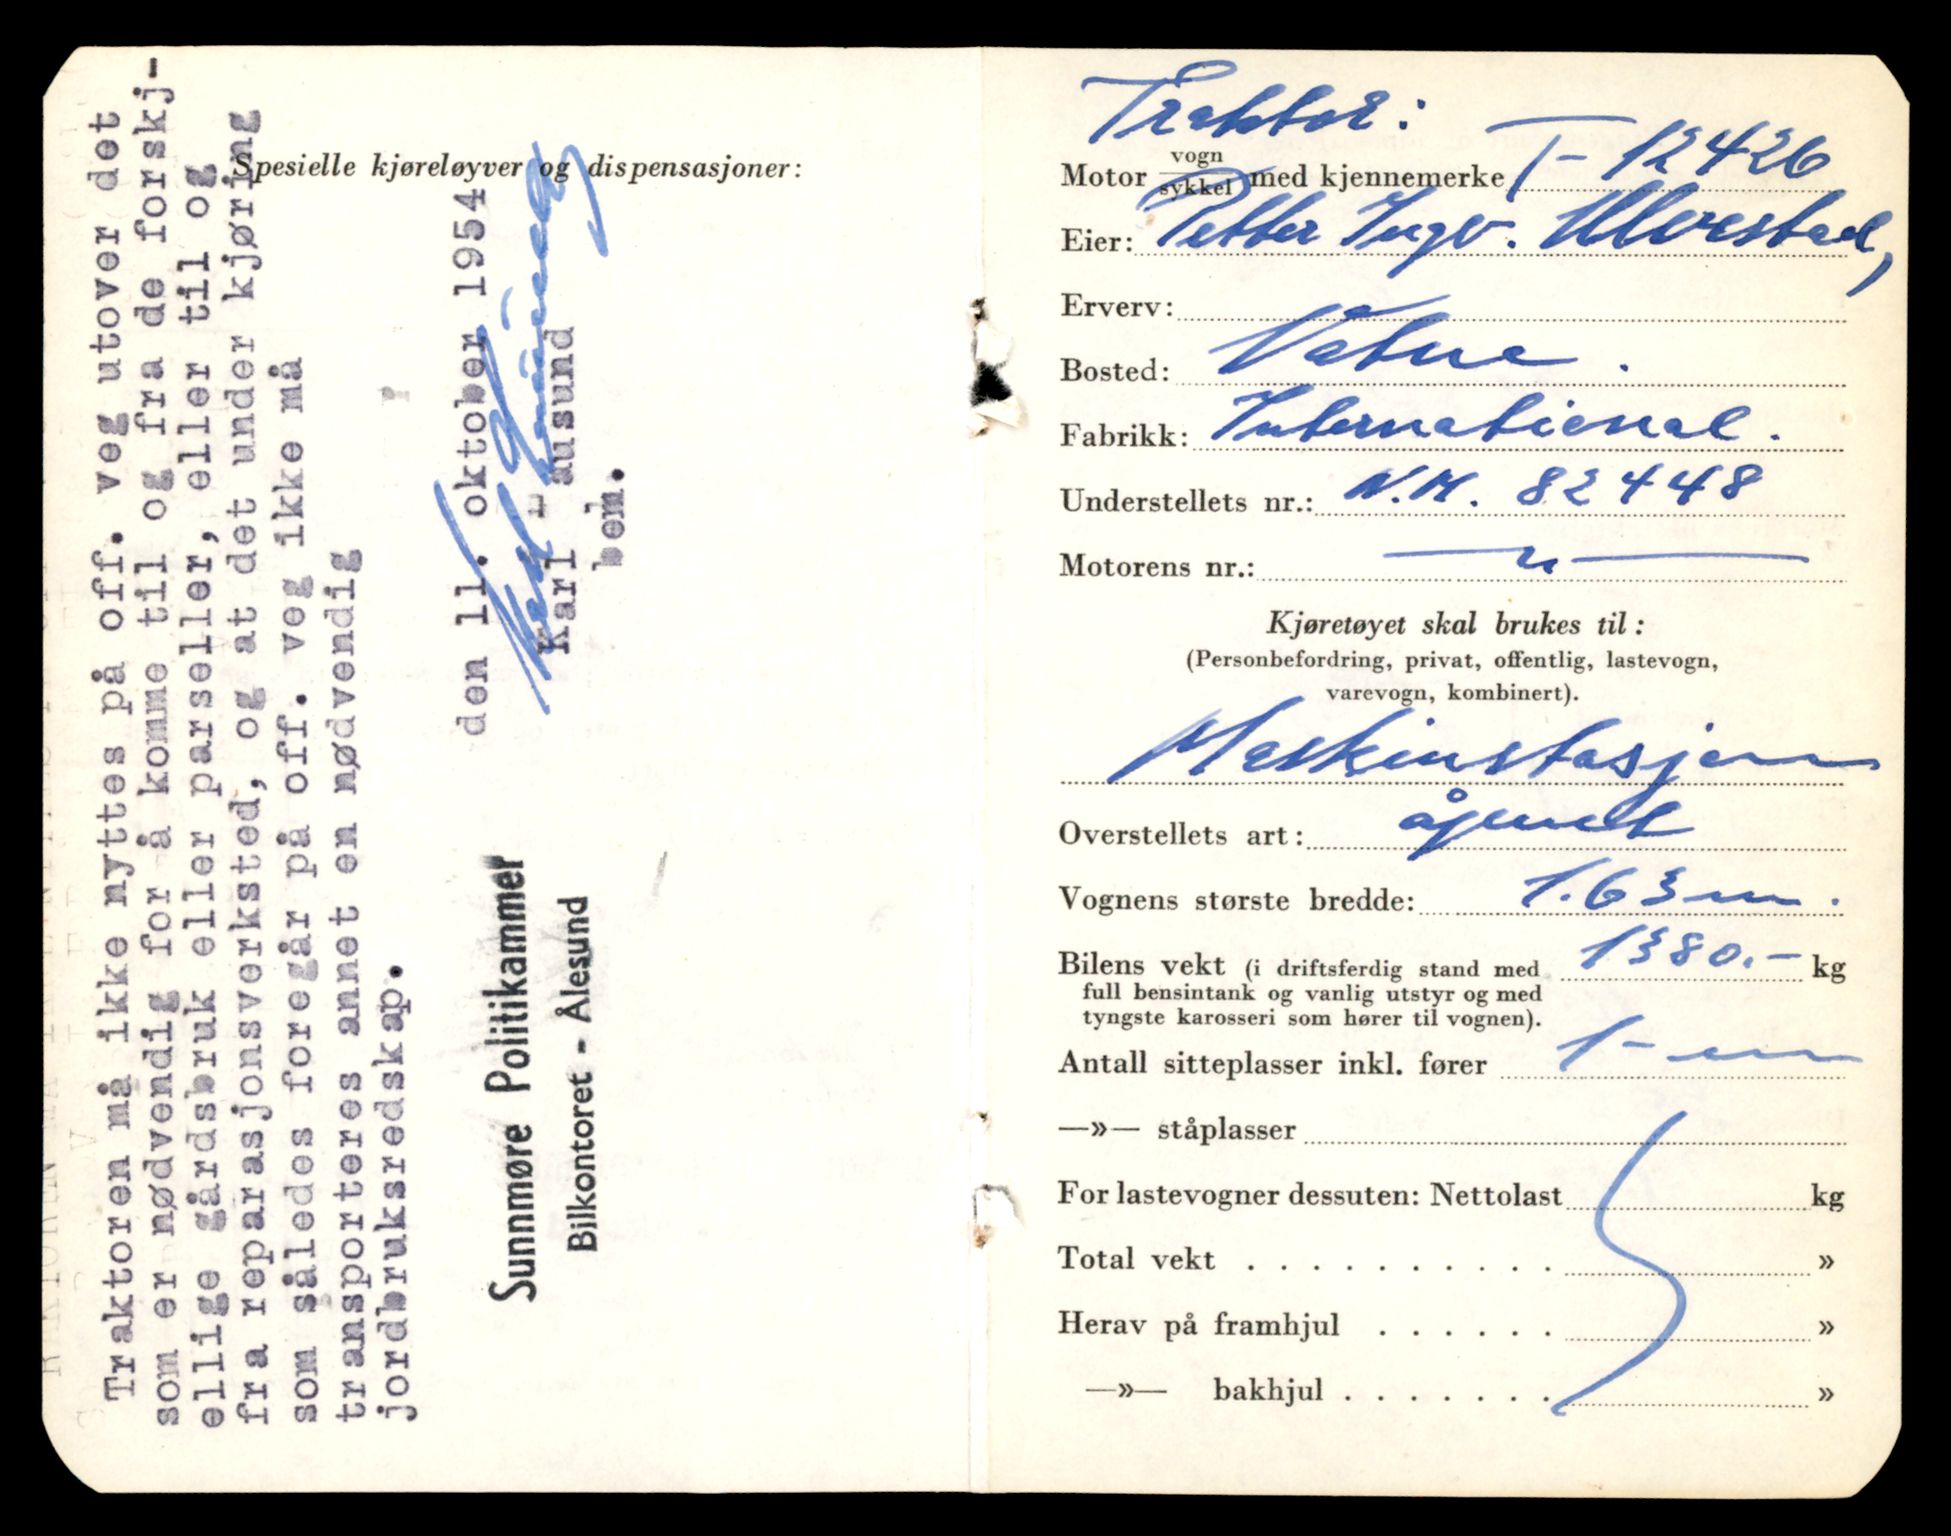 Spesielle kjøreløyver og dispensasjoner:
Traktoren må ikke nyttes på off. veg utover det
som er nødvendig for å komme til og fra de forskj-
ellige gårdsbruk eller parseller, eller til og
fra reparasjonsverksted, og at det under kjøring
som således foregår på off. veg ikke må
transporteres annet en nødvendig
jordbruksredskap.
Sunnmøre Politikammer
Bilkontoret - Ålesund
den 11. oktober 1954
Karl
bem.
Traktor:
Motor vogn sykkel med kjennemerke T-12426
Eier: Petter Ingv. Ulvestad,
Erverv:
Bosted: Vatne.
Fabrikk: International.
Understellets nr.: N.M. 82448
Motorens nr.: — " —
Kjøretøyet skal brukes til:
(Personbefordring, privat, offentlig, lastevogn,
varevogn, kombinert).
Maskinstasjon
Overstellets art: åpent
Vognens største bredde: 1.63 m.
Bilens vekt (i driftsferdig stand med 1380.- kg
full bensintank og vanlig utstyr og med
tyngste karosseri som hører til vognen).
Antall sitteplasser inkl. fører 1 - en
—»— ståplasser
For lastevogner dessuten: Nettolast kg
Total vekt . . . . . . . . . . »
Herav på framhjul . . . . . . »
—»— bakhjul . . . . . . . »